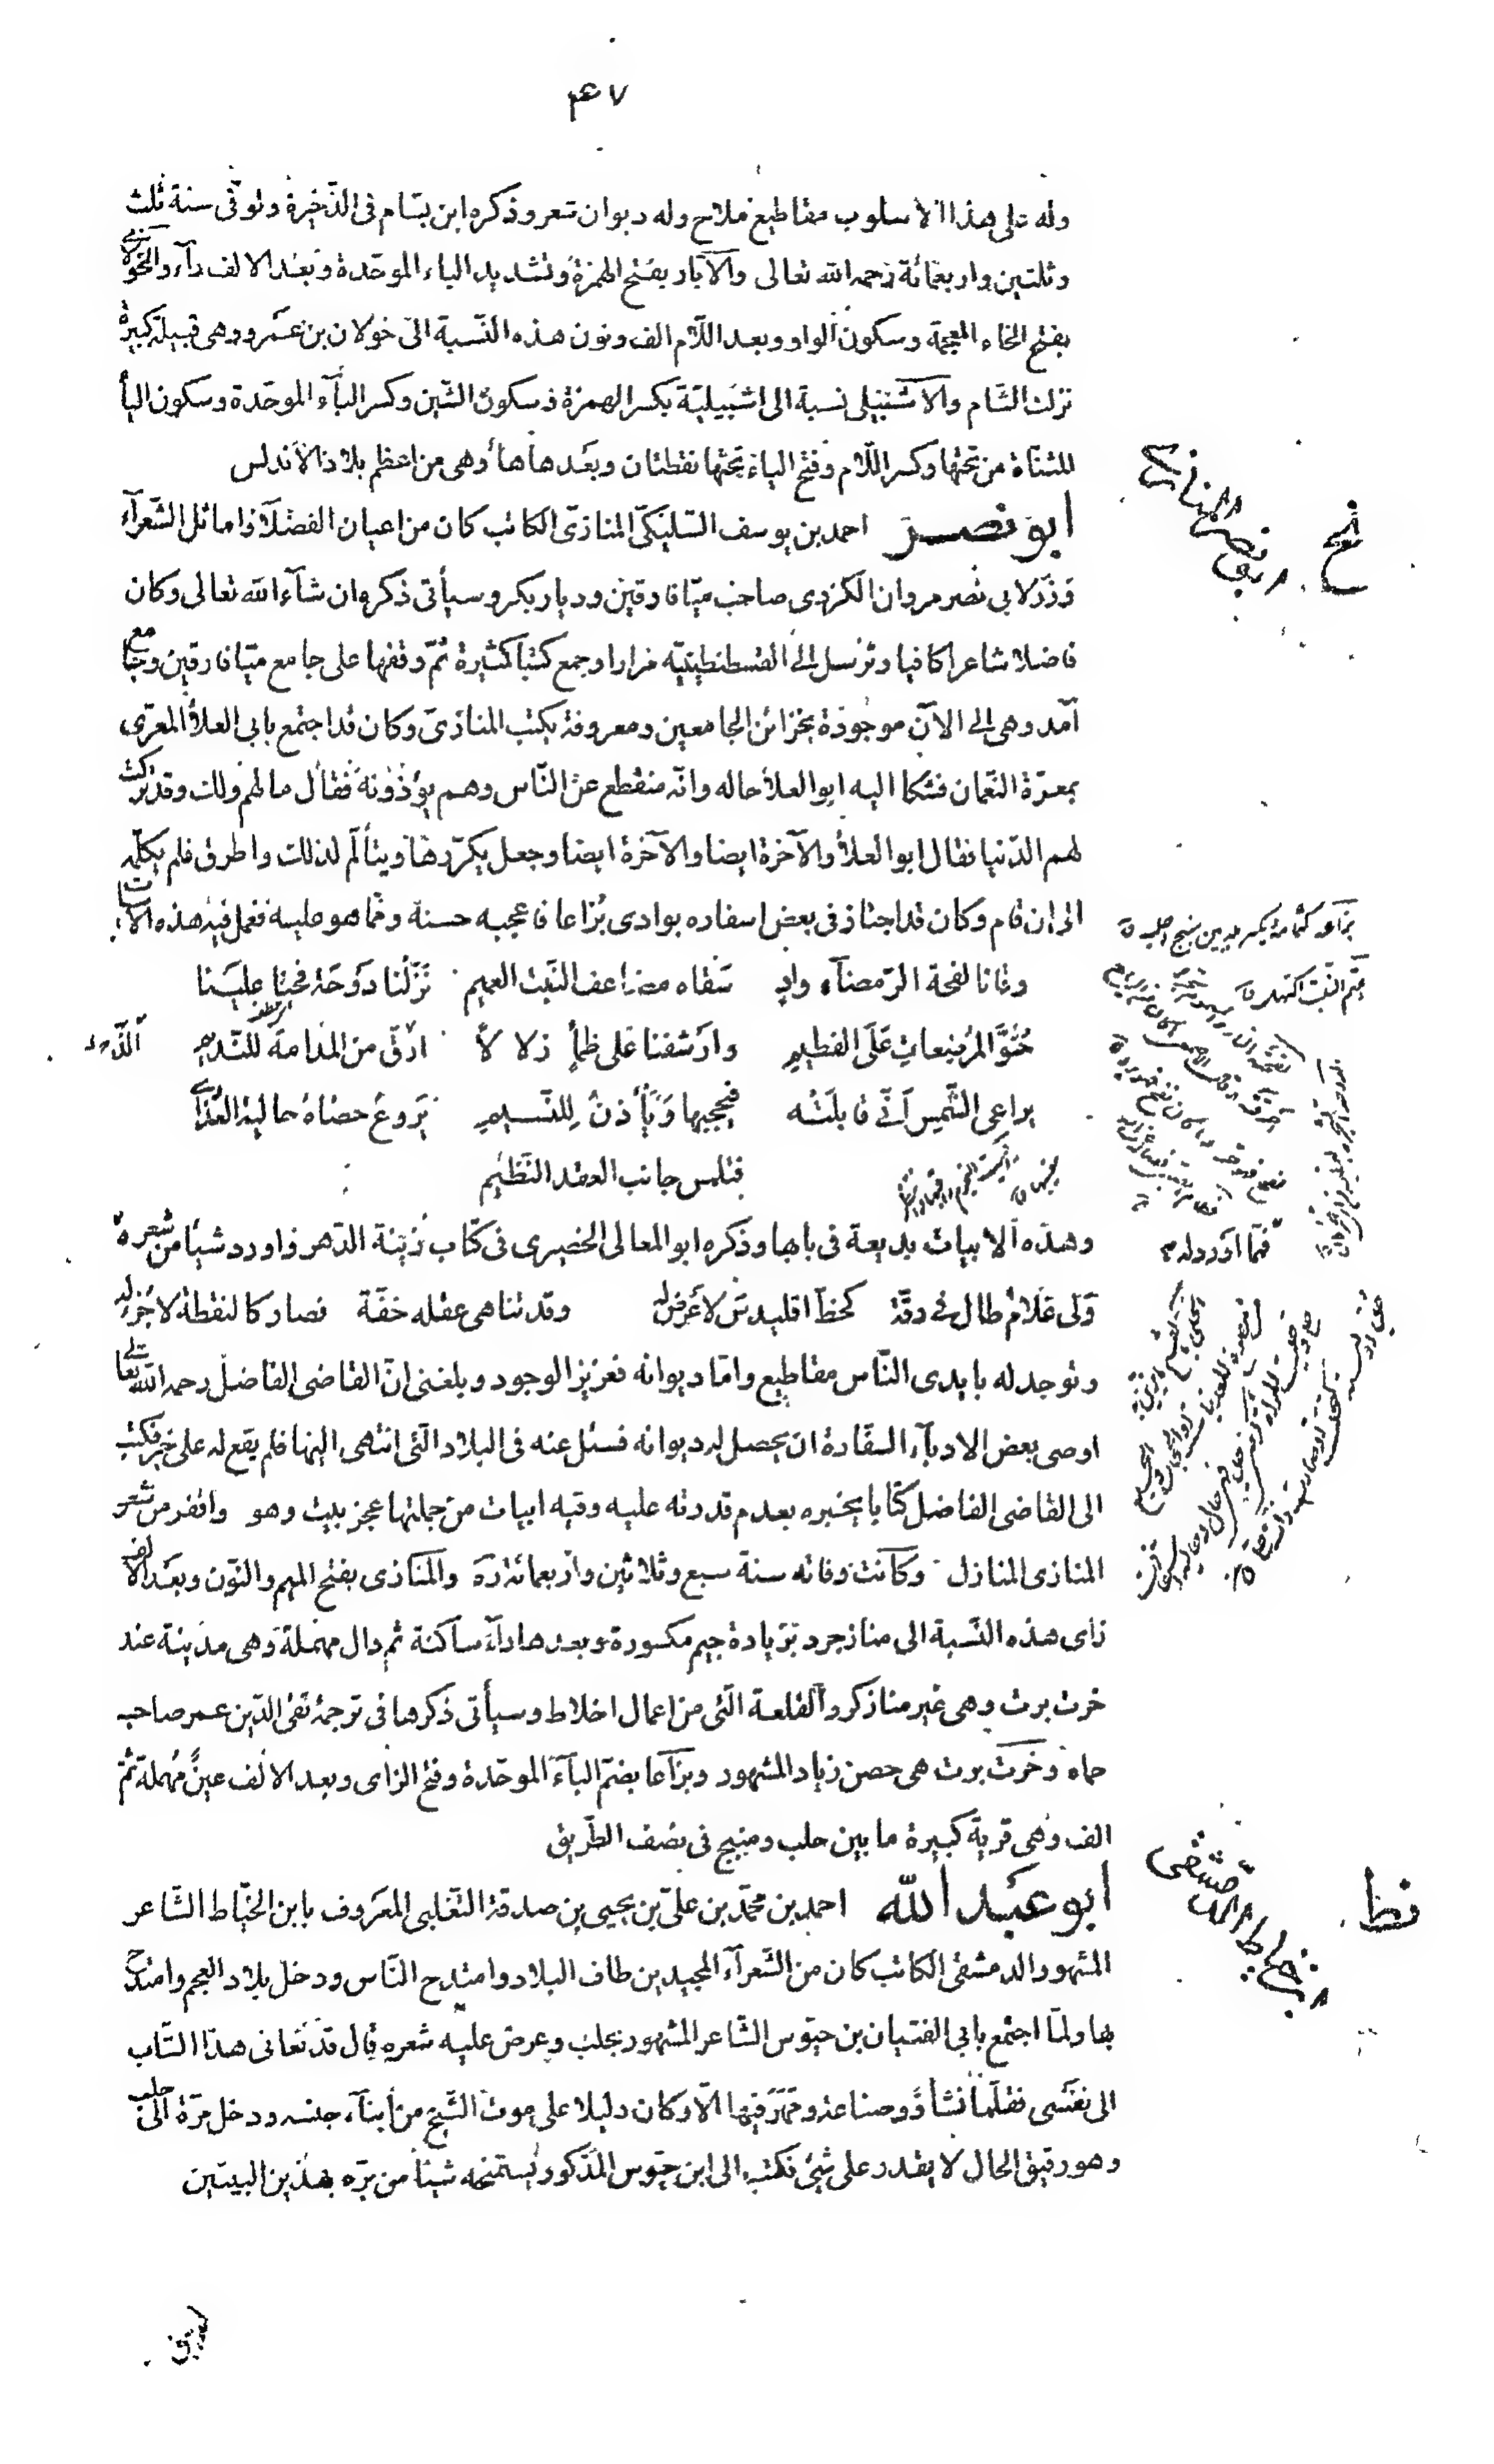 ۴۷
وله على هذا الاسلوب مقاطيع ملاح وله ديوان شعر وذكره ابن بسّام فى الذّخيرة وتوفّى سنة ثلث
وثلثين واربعمائة رحمه الله تعالى والآبّار بفتح الهمزة وتشديد الباء الموحّدة وبعد الالف رآء والخولانى
بفتح الخاء المعجمة وسكون الواو وبعد اللّام الف ونون هذه النّسبة الى خولان بن عمرو وهى قبيلة كبيرة
نزلت الشّام والاشبيلى نسبة الى اشبيليّة بكسر الهمزة وسكون الشّين وكسر البآء الموحّدة وسكون اليآ
المثنّاة من تحتها وكسر اللّام وفتح الياء تحتها نقطتان وبعدها هآء وهى من اعظم بلاد الاندلس
ابو نصر احمد بن يوسف السّليكىّ المنازىّ الكاتب كان من اعيان الفضلآء واماثل الشّعرآء
وزر لابى نصر مروان الكردى صاحب ميّافارقين وديار بكر وسيأتى ذكره ان شآء الله تعالى وكان
فاضلا شاعرا كافيا وترسل الى القسطنطينيّه مرارا وجمع كتبا كثيرة ثمّ وقفها على جامع ميّافارقين وجامع
آمد وهى الى الآن موجودة بخزائن الجامعين ومعروفة بكتب المنازىّ وكان قد اجتمع بابى العلآء المعرّى
بمعرّة النّعمان فشكا اليه ابو العلآء حاله وانّه منقطع عن النّاس وهم يؤذونه فقال مالهم ولك وقد تركت
لهم الدّنيا فقال ابو العلآء والآخرة ايضا والآخرة ايضا وجعل يكرّرها ويتألّم لذلك واطرق فلم يكلّمه
الى ان قام وكان قد اجتاز فى بعض اسفاره بوادى بُزاعا فاعجبه حسنة وما هو عليه فعمل فيه هذه الابيات
وقانا لفحة الرّمضآء وادٍ سَقاه مضاعف النّبت العميم نَزَلْنا دَوْحَهُ فحَنا علينا
حُنُوَّ المُرْضِعاتِ عَلَى الفطيمِ وارشفنا على ظمأٍ زلالاً ارقّ من المدامة للنّديم
يراعى الشّمس أنّى قابلَتْه فيحجبها ويَأْذن لِلنّسيمِ تروع حصاهُ حالية العذارى
فتلمس جانب العقد النّظيم
وهذه الابيات بديعة فى بابها وذكره ابو المعالى الخضيرى فى كتاب زينة الدّهر واورد شيئا من شعره
فمّا اورد له
ولى غلامٌ طال فى دقّة كخطّ اقليدس لا عرض له وقد تناهى عقله خفّة فصار كالنقطة لا جزء له
وتوجد له بايدى النّاس مقاطيع وامّا ديوانه فعزيز الوجود وبلغنى انّ القاضى الفاضل رحمه الله تعالى
اوصى بعض الادبآء السفّارة ان يحصل له ديوانه فسئل عنه فى البلاد التى انتهى اليها فلم يقع له على خبر فكتب
الى القاضى الفاضل كتابا يخبره بعدم قدرته عليه وفيه ابيات من جملتها عجز بيت وهو واقفر من شعر
المنازى المنازل وكانت وفاته سنة سبع وثلاثين واربعمائة ره والمنازى بفتح الميم والنّون وبعد الالف
زاى هذه النّسبة الى منازجرد بزيادة جيم مكسورة وبعدها رآء ساكنة ثم دال مهملة وهى مدينة عند
خرت برت وهى غير منازكرد القلعة الّتى من اعمال اخلاط وسيأتى ذكرها فى ترجمة تقىّ الدّين عمر صاحب
حماه وخرت برت هى حصن زياد المشهور وبزاعا بضمّ البآء الموحّدة وفتح الزاى وبعد الالف عينٌ مهملة ثمّ
الف وهى قرية كبيرة ما بين حلب ومنبج فى نصف الطّريق
ابو عبد الله احمد بن محمّد بن علىّ بن يحيى بن صدقة التّغلبى المعروف بابن الخيّاط الشّاعر
المشهور الدمشقى الكاتب كان من الشّعرآء المجيدين طاف البلاد وامتدح النّاس ودخل بلاد العجم وامتدح
بها ولمّا اجتمع بابى الفتيان بن حيّوس الشّاعر المشهور بحلب وعرض عليه شعره قال قد نعانى هذا الشّاب
الى نفسى فقلّما نشأ ذو صناعة ومَهَرَ فيها الّا وكان دليلا على موت الشّيخ من أبنآء جنسه ودخل مرّة الى حلب
وهو رقيق الحال لا يقدر على شئ فكتب الى ابن حيّوس المذكور يستمنحه شيئا من برّه بهذين البيتين